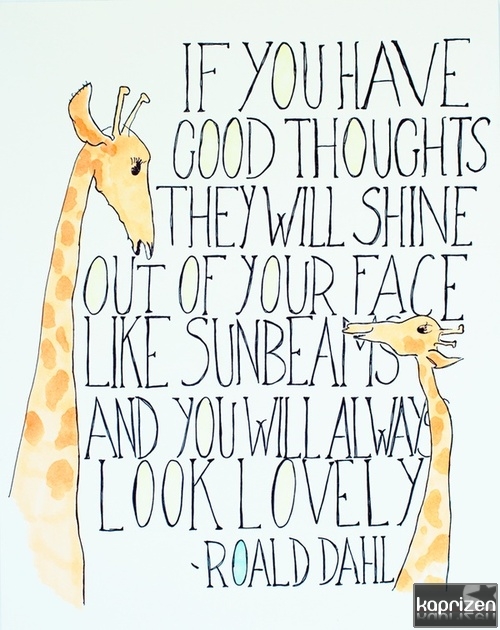 IF YOU HAVE
GOOD THOUGHTS
THEY WILL SHINE
OUT OF YOUR FACE
LIKE SUNBEAMS
AND YOU WILL ALWAYS
LOOK LOVELY
-ROALD DAHL
kaprizen